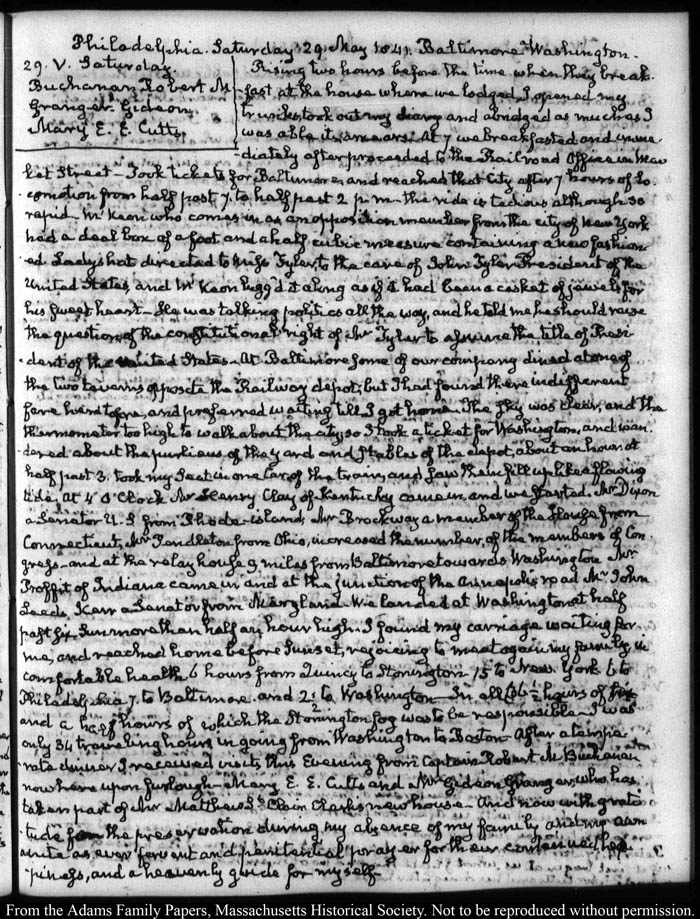 Philadelphia. Saturday 29. May 1841. Baltimore Washington.
29. V. Saturday.
Buchanan Robert M
Granger Gideon
Mary E. E. Cutts
Rising two hours before the time when they break-
fast at the house where we lodged, I opened my
trunk took out my diary and abridged as much as I
was able its arrears. At 7 we breakfasted and imme
diately after proceeded to the Railroad Office in Mar
ket Street - Took tickets for Baltimore, and reached that City after 7 hours of lo-
comotion from half past 7. to half past 2 p.m - the ride is tedious although so
rapid - Mr Keon who comes in as an opposition member from the city of New York
had a deal box of a foot and a half cubic measure containing a new fashion
ed Lady's hat directed to Miss Tyler, to the care of John Tyler President of the
United States, and Mr Keon lugg'd it along as if it had been a casket of jewels for
his sweet heart - He was talking politics all the way, and he told me he should raise
the question, of the constitutional right of Mr Tyler to assume the title of Presi-
dent of the United States - At Baltimore some of our company dined at one of
the two taverns opposite the Railway depot; but I had found there indifferent
fare heretofore, and preferred waiting till I got home. The sky was clear, and the
thermometer too high to walk about the city, so I took a ticket for Washington, and wan
dered about the purlieus of the yard and stables of the depot, about an hour. At
half past 3. took my seat in one Car of the train, and saw them fill up like a flowing
tide. At 4 O'Clock Mr Henry Clay of Kentucky came in, and we started. Mr Dixon
a Senator U.S from Rhode-island, Mr Brockway a member of the House from
Connecticut, Mr Pendleton from Ohio, increased the number, of the members of Con
gress - and at the relay house 9 miles from Baltimore towards Washington Mr
Proffit of Indiana came in, and at the junction of the Annapolis road Mr John
Leeds Kerr a Senator from Maryland. We landed at Washington at half
past six, Sun more than half an hour high. I found my carriage waiting for
me, and reached home before Sunset, rejoicing to meet again my family, in
comfortable health. 6 hours from Quincy to Stonington 15 to New York 6 to
Philadelphia 7. to Baltimore. and 2½ to Washington - In all hours of
and a half hours of which the Stonington fog was to be responsible - I was
only 34 traveling hours in going from Washington to Boston. After a tempe
rate dinner I received visits this Evening from Captain Robert M Buchanan
now here upon furlough - Mary E. E. Cutts and Mr Gideon Granger, who has
taken part of Mr Matthew St Clair Clarke's new house - And now with grati
tude for the preservation during my absence of my family and my own
unite as ever fervent and penitential prayer for their continued hap
piness, and a heavenly guide for myself -
From the Adams Family Papers, Massachusetts Historical Society. Not to be reproduced without permission.